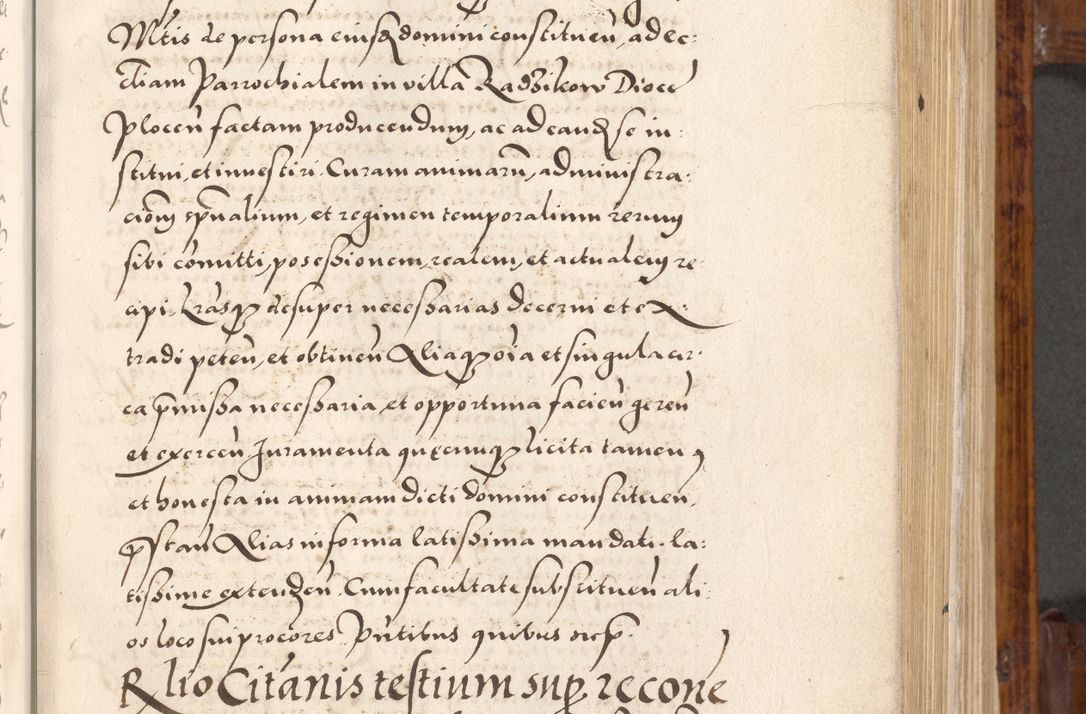 Mtis de persona eiusq domini constituen, ad ec:
cliam Parrochialem in villa Radzikow Dioce
Plocen factam producendum, ac ad eandq se in:
stitui, et inuestiri. Curam animarū, administra:
ciōm spūalium, et regimen temporalium rerum
sibi cōmitti, posesßionem, realem, et actualem re:
cipi. Lrasq desuper necesßarias decerni et ex:
tradi peten, et obtinen Aliaq oīa et singula cir:
ca p̄misßa necesßaria, et opportuna facien geren
et exercen. Iuramenta quęcunq licita tamen
et honesta in animam dicti domini constituen,
pstan Alias in forma latisßima mandati. la:
tisßime extenden. Cum facultate substituen ali:
os loco sui procōres. Pn̄tibus quibus sup.
Rlio Citānis testium sup. recone